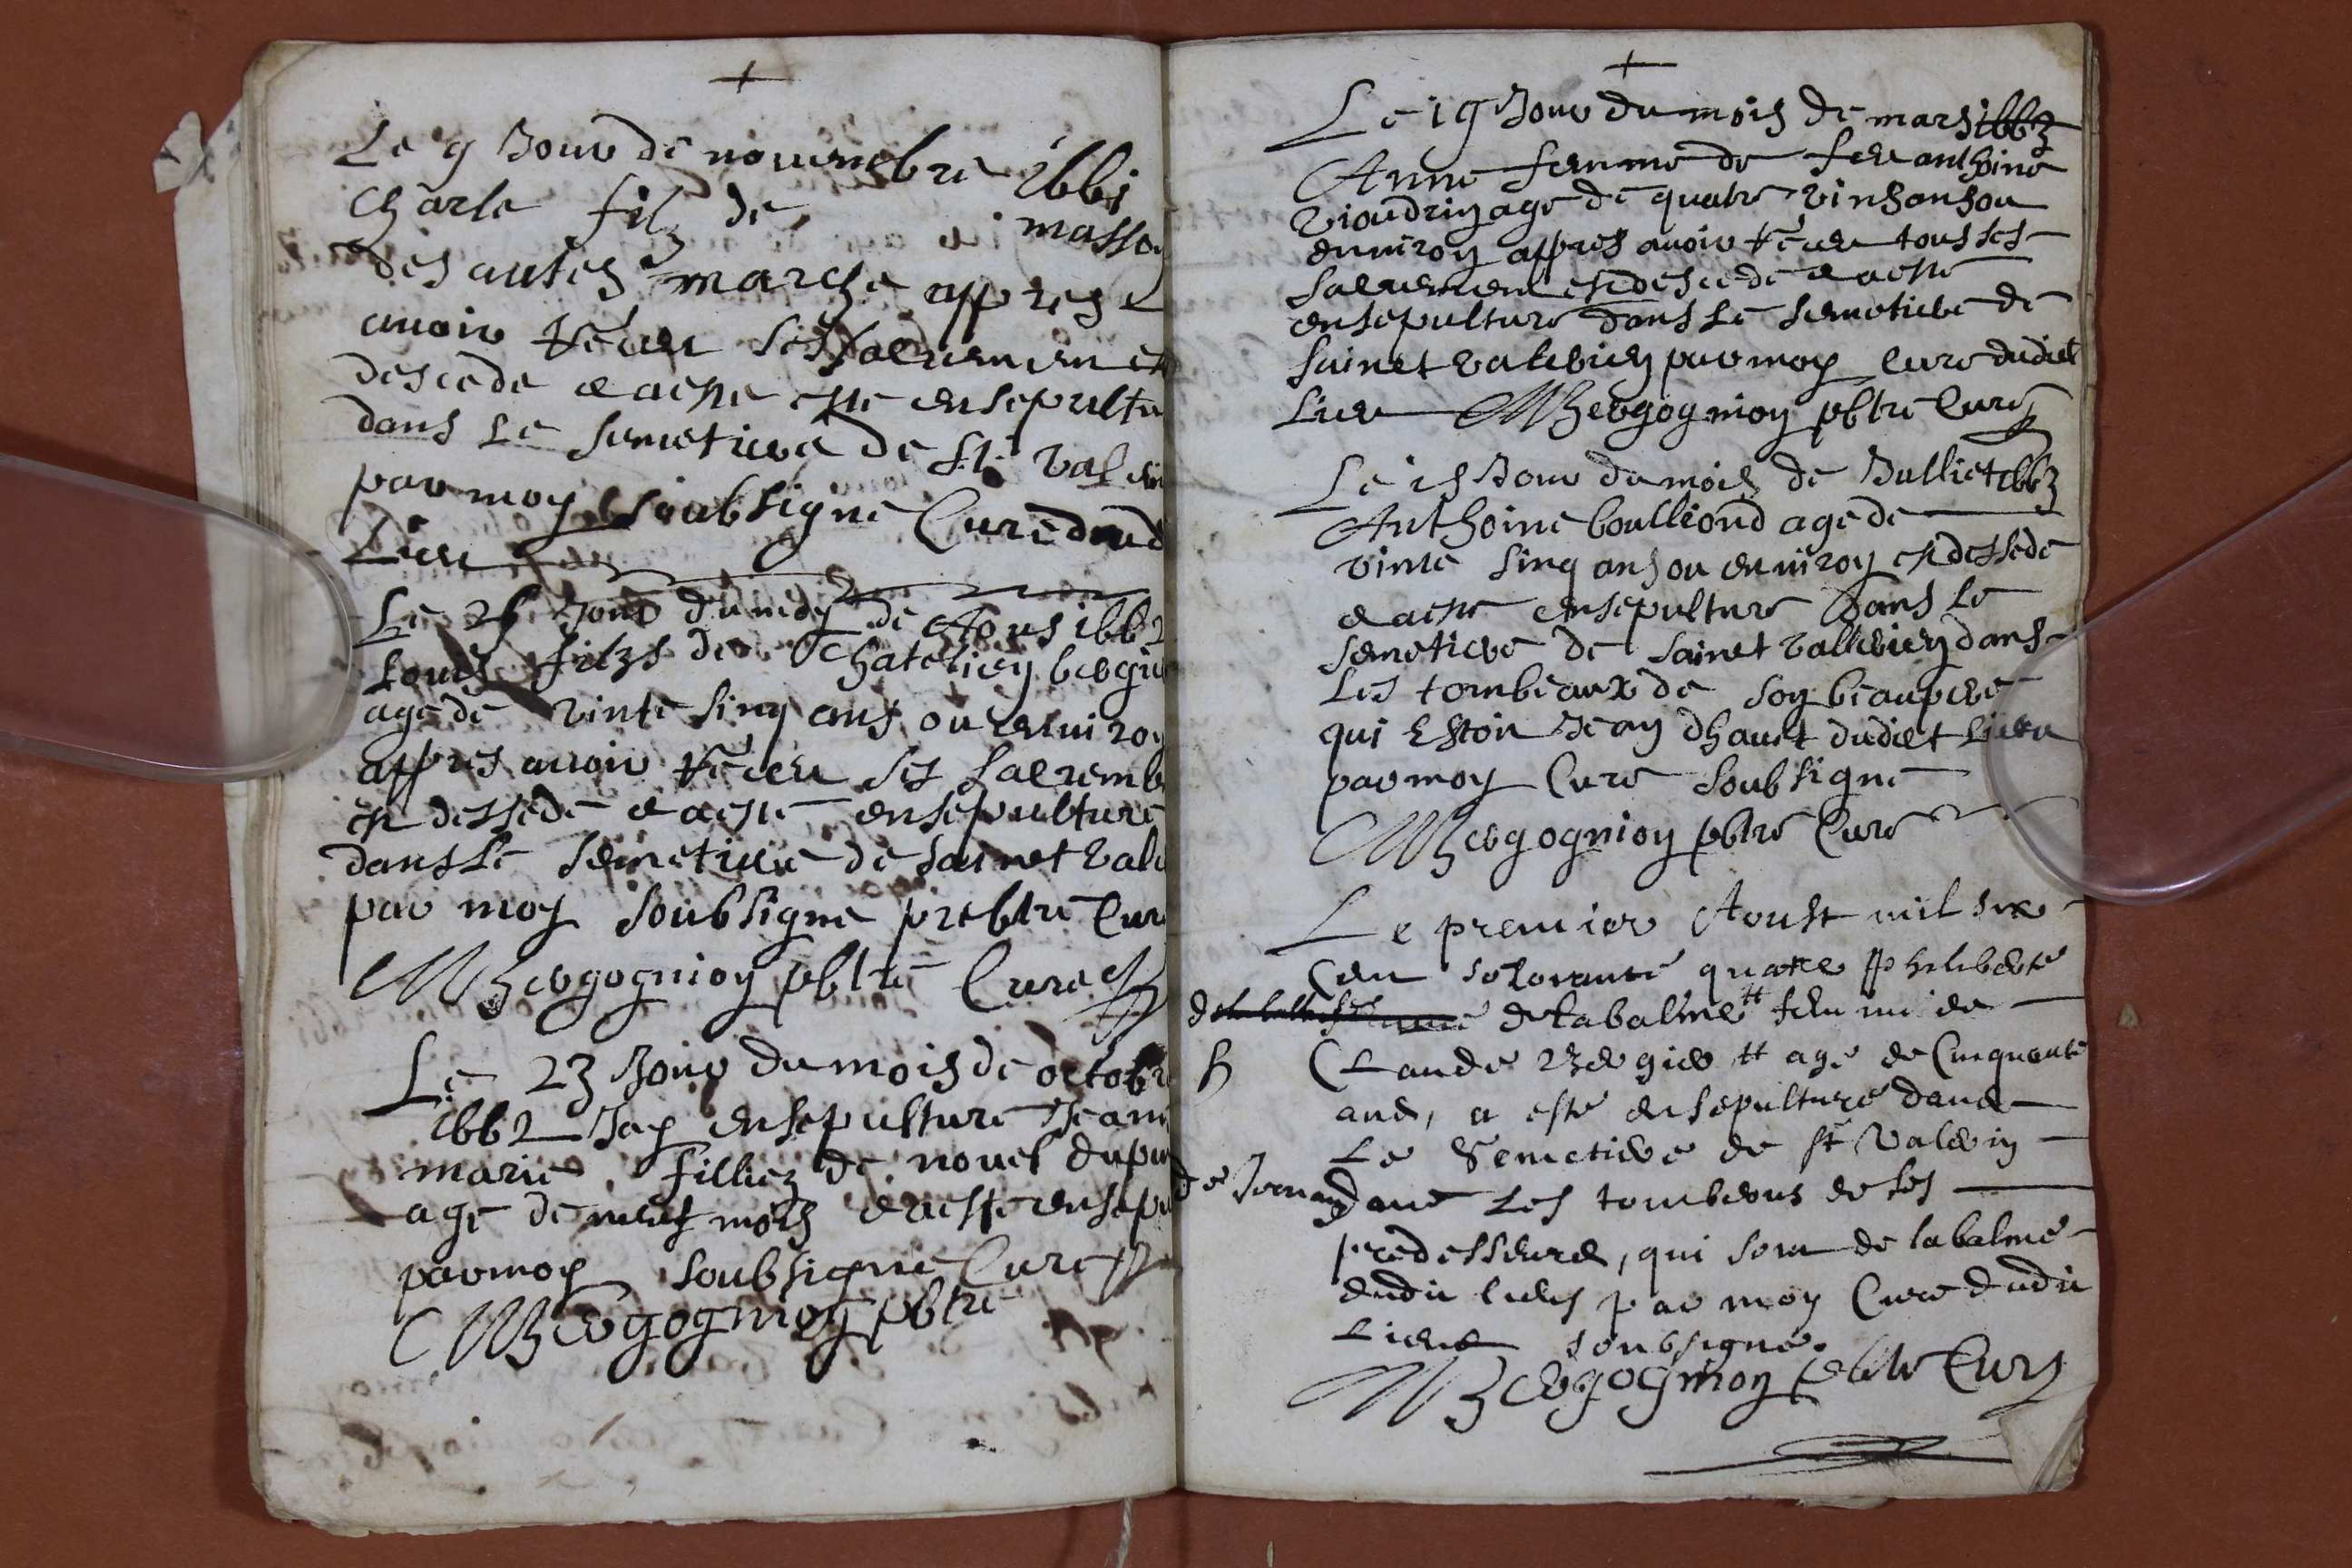 Le 9 Jour de nouembre 1661
Charle filz de masso
des autes marche appres
auoir Receu ses Sacremen est
descede e aeste este ensepultu
dans le semetiere de St Valeri
par moy soubsigne Cure dud
Lieu
Le 26 Jour du moy de Aous 1662
Louis filzs de Chateliey bergie
age de vinte sinq ans ou enuiroy
appres auoir Receu ses sacremt
est dessede e aeste ensepulture
dans Le semetiere de sainct Vale
par moy soubsigne prebtre Cure
M Bergognioy pbtre Cure
Le 23 Jour du mois de octobre
1662 Jay ensepulture Jeanne
marie filliez de nouel dupu
age de neuf mois e aeste ensepu
par moy soubsigne Cure
M Bergognioy pbtre
Le 19 Jour du mois de mars 1663
Anne femme de feu anthoine
vioudriy age de quatre vinhans ou
enuiroy appres auoir Receu tous ses
sacremen est descede e aeste
ensepulture dans Le semetiere de
sainct valeriey par moy Cure dudict
Lieu M Bergogmoy pbtre Cure
Le 15 Jour du mois de Julliet 1663
Anthoine boulliond age de
vinte sinq ans ou enuiroy est dessede
e aeste ensepulture dans Le
semetiere de sainct valleriey dans
Les tombeaux de soy beaupere
qui Estoit Jeay dhauet dudict Lieu
par moy Cure soubsigne
M Bergognioy pbtre Cure
Le premier Aoust mil six
Cen soixante quatre Philiberte
de labalme femme de
Claude Bergier age de Cinquante
ans, a este ensepulturé dans
Le Semetiere de St Valeriy
dans Les tombeaus de ses
predesseurs, qui sont de labalme
dudit lieus par moy Cure dudit
Lieus soubsigné.
M Bergogmoy pbtre Cure